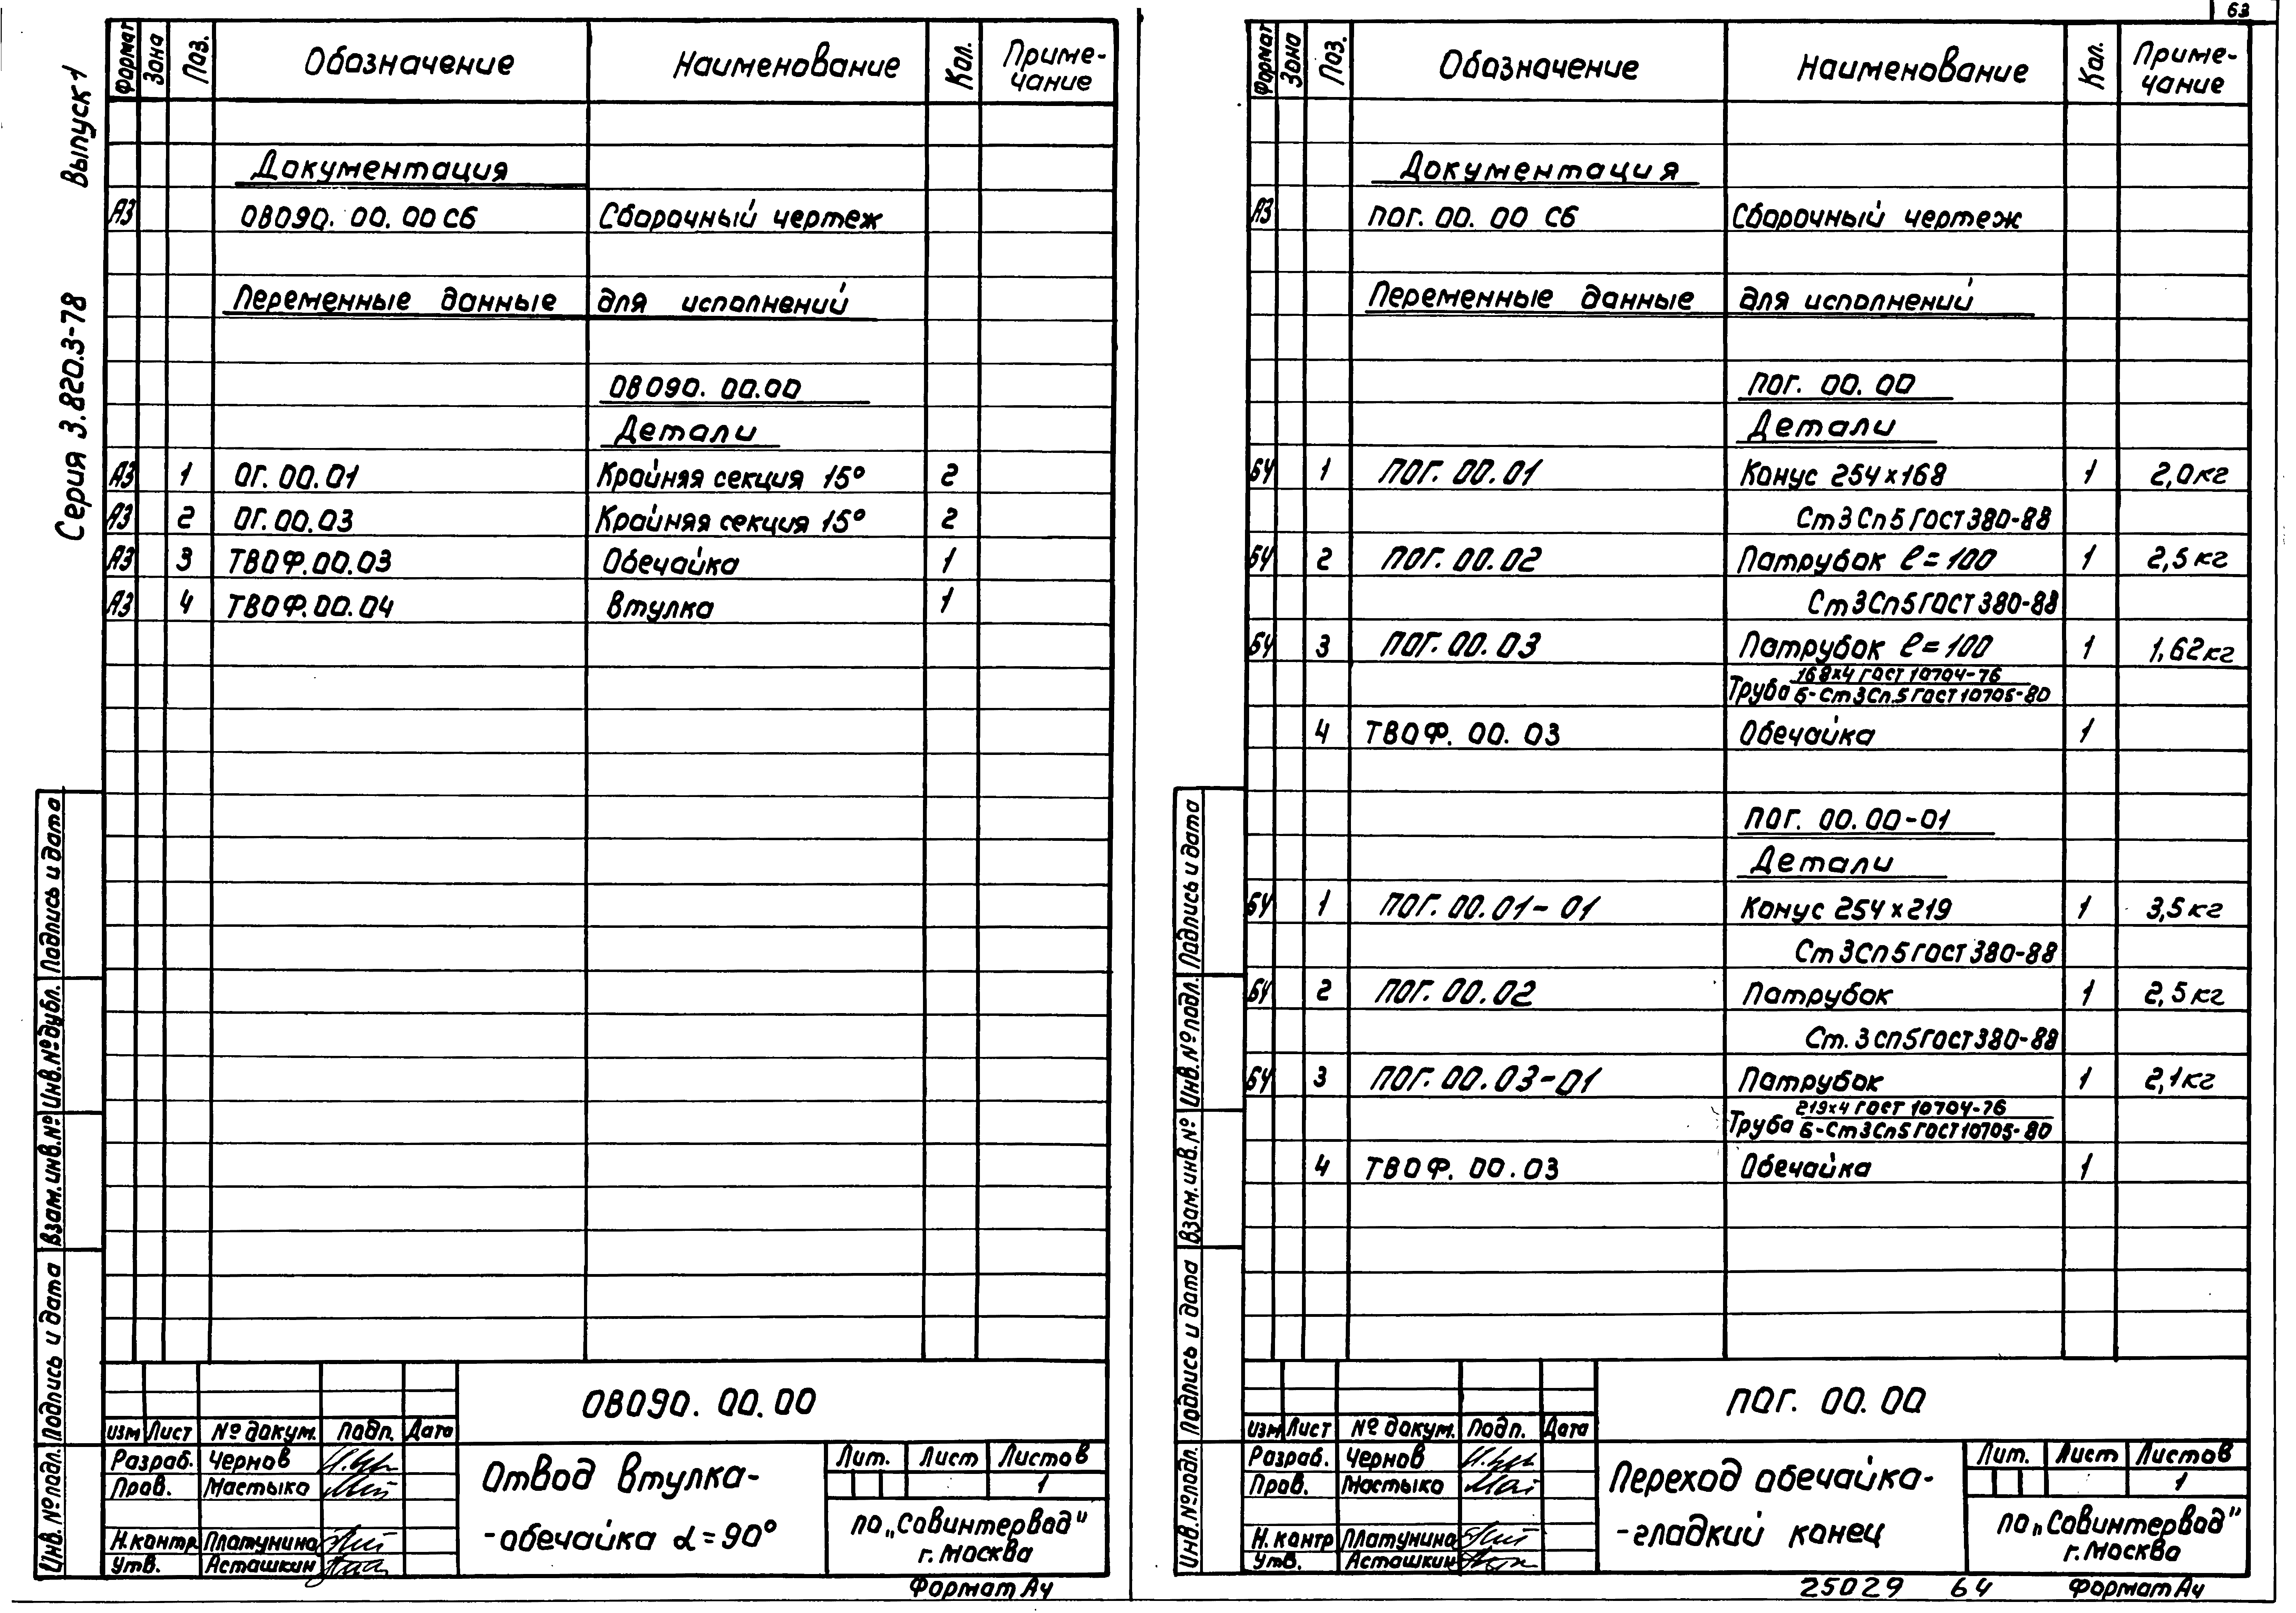 63
Серия 3.820.3-78 Выпуск 1
Формат Зона Поз. Обозначение Наименование Кол. Приме-
чание
Документация
А3 ОВ090. 00. 00 СБ Сборочный чертеж
Переменные данные для исполнений
ОВ090. 00.00
Детали
А3 1 ОГ. 00.01 Крайняя секция 15° 2
А3 2 ОГ.00.03 Крайняя секция 15° 2
А3 3 ТВОФ.00.03 Обечайка 1
А3 4 ТВОФ.00.04 Втулка 1
Инв.№подл. Подпись и дата Взам.инв.№ Инв.№дубл. Подпись и дата
ОВ090. 00.00
Изм Лист № докум. Подп. Дата
Разраб. Чернов
Пров. Мастыко
Н.контр Платунина
Утв. Асташкин
Отвод втулка-
-обечайка α=90°
Лит. Лист Листов
1
по „Совинтервод"
г. Москва
Формат А4
Формат Зона Поз. Обозначение Наименование Кол. Приме-
чание
Документация
А3 ПОГ. 00. 00 СБ Сборочный чертеж
Переменные данные для исполнений
ПОГ. 00.00
Детали
БЧ 1 ПОГ. 00.01 Конус 254х168 1 2,0кг
Ст3Сп5 ГОСТ 380-88
БЧ 2 ПОГ. 00.02 Патрубок ℓ=100 1 2,5кг
Ст3Сп5 ГОСТ 380-88
БЧ 3 ПОГ. 00.03 Патрубок ℓ=100 1 1,62кг
168х4 ГОСТ 10704-76
Труба Б-Ст3Сп.5 ГОСТ 10705-80
4 ТВОФ. 00. 03 Обечайка 1
ПОГ. 00.00-01
Детали
БЧ 1 ПОГ. 00.01-01 Конус 254х219 1 3,5кг
Ст3Сп5 ГОСТ 380-88
БЧ 2 ПОГ. 00.02 Патрубок 1 2,5кг
Ст.3сп5 ГОСТ 380-88
БЧ 3 ПОГ. 00.03-01 Патрубок 1 2,1кг
219х4 ГОСТ 10704-76
Труба Б-Ст3Сп5 ГОСТ 10705-80
4 ТВОФ. 00.03 Обечайка 1
Инв.№подл. Подпись и дата Взам.инв.№ Инв.№подл. Подпись и дата
ПОГ. 00.00
Изм Лист № докум. Подп. Дата
Разраб. Чернов
Пров. Мастыко
Н.контр Платунина
Утв. Асташкин
Переход обечайка-
-гладкий конец
Лит. Лист Листов
1
по „Совинтервод"
г. Москва
25029 64 Формат А4